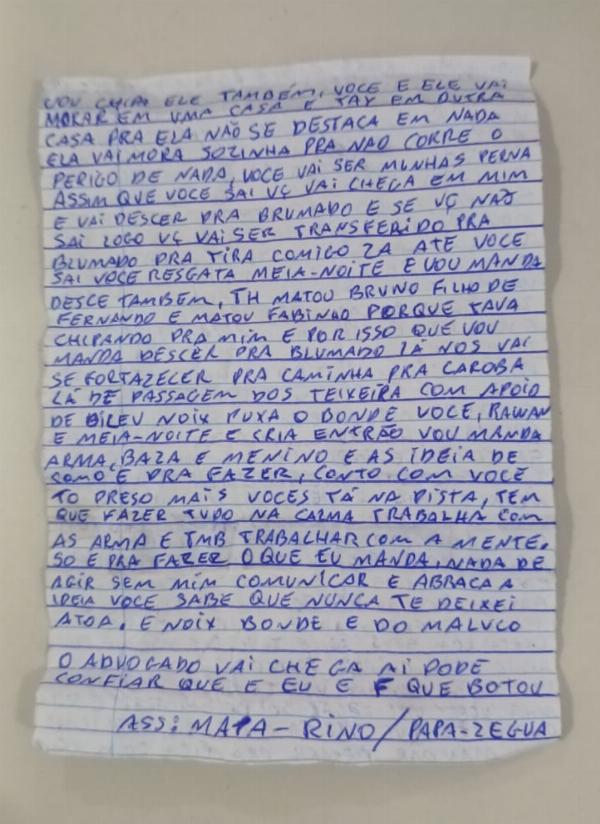 VOU CHIPA ELE TAMBÉM, VOCE E ELE VAI
MORAR EM UMA CASA E TAY EM OUTRA
CASA PRA ELA NÃO SE DESTACA EM NADA
ELA VAI MORA SOZINHA PRA NAO CORRE O
PERIGO DE NADA, VOCE VAI SER MINHAS PERNA
ASSIM QUE VOCE SAI VÇ VAI CHEGA EM MIM
E VAI DESCER PRA BRUMADO E SE VÇ NAO
SAI LOGO VÇ VAI SER TRANSFERIDO PRA
BLUMADO PRA TIRA COMIGO LA ATE VOCE
SAI VOCE RESGATA MEIA-NOITE E VOU MANDA
DESCE TAMBEM, TH MATOU BRUNO FILHO DE
FERNANDO E MATOU FABINHO PORQUE TAVA
CHIPANDO PRA MIM E POR ISSO QUE VOU
MANDA DESCER PRA BLUMADO LÁ NOS VAI
SE FORTALECER PRA CAMINHA PRA CAROBA
LÁ DE PASSAGEM DOS TEIXEIRA COM APOIO
DE DILEU NOIX PUXA O BONDE VOCE, RAWAN
E MEIA-NOITE E CRIA ENTRÃO VOU MANDA
ARMA, BALA E MENINO E AS IDEIA DE
COMO E PRA FAZER, CONTO COM VOCE
TO PRESO MAIS VOCES TÁ NA PISTA, TEM
QUE FAZER TUDO NA CALMA TRABALHA COM
AS ARMA E TMB TRABALHAR COM A MENTE.
SO E PRA FAZER O QUE EU MANDA, NADA DE
AGIR SEM MIM COMUNICAR E ABRAÇA A
IDEIA VOCE SABE QUE NUNCA TE DEIXEI
ATOA. E NOIX BONDE E DO MALUCO
O ADVOGADO VAI CHEGA AI PODE
CONFIAR QUE E EU E F QUE BOTOU
ASS: MATA-RINO/PAPA-LEGUA